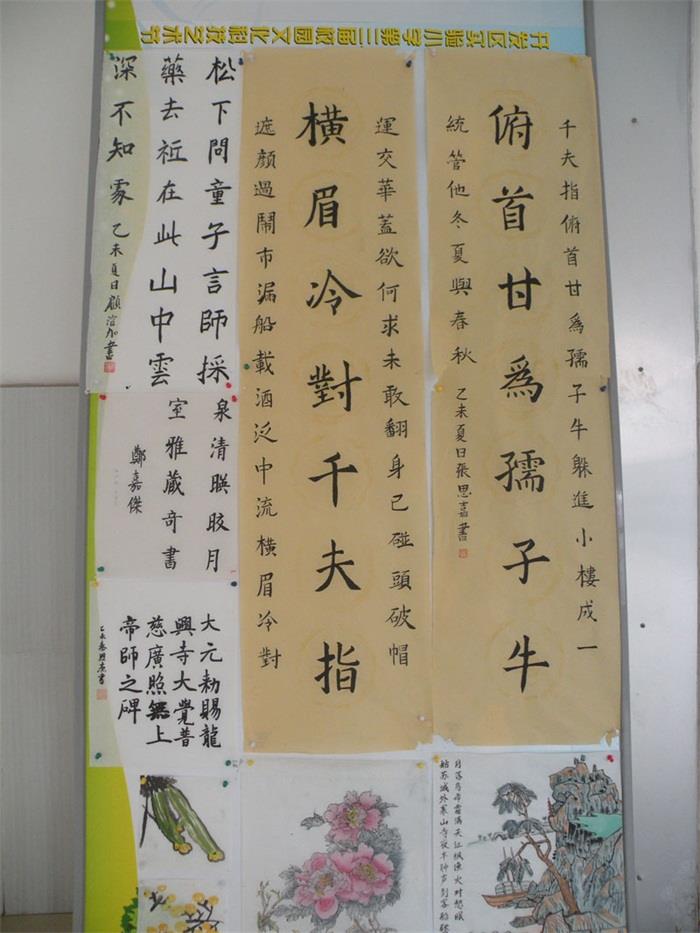 开发区实验小学第三届校园文化科技艺术节
千夫指俯首甘為孺子牛躲進小樓成一
俯首甘為孺子牛
統管他冬夏與春秋 乙未夏日張思嘉書
運交華蓋欲何求未敢翻身已碰頭破帽
橫眉冷對千夫指
遮顏過鬧市漏船載酒泛中流橫眉冷對
松下問童子言師採
藥去祗在此山中雲
深不知處 乙未夏日顧渲加書
泉清暎晈月
室雅蔵奇書
鄭嘉傑
大元勑賜龍
興寺大覺普
慈廣照無上
帝師之碑
月落烏啼霜满天江枫渔火对愁眠
姑苏城外寒山寺夜半钟声到客船